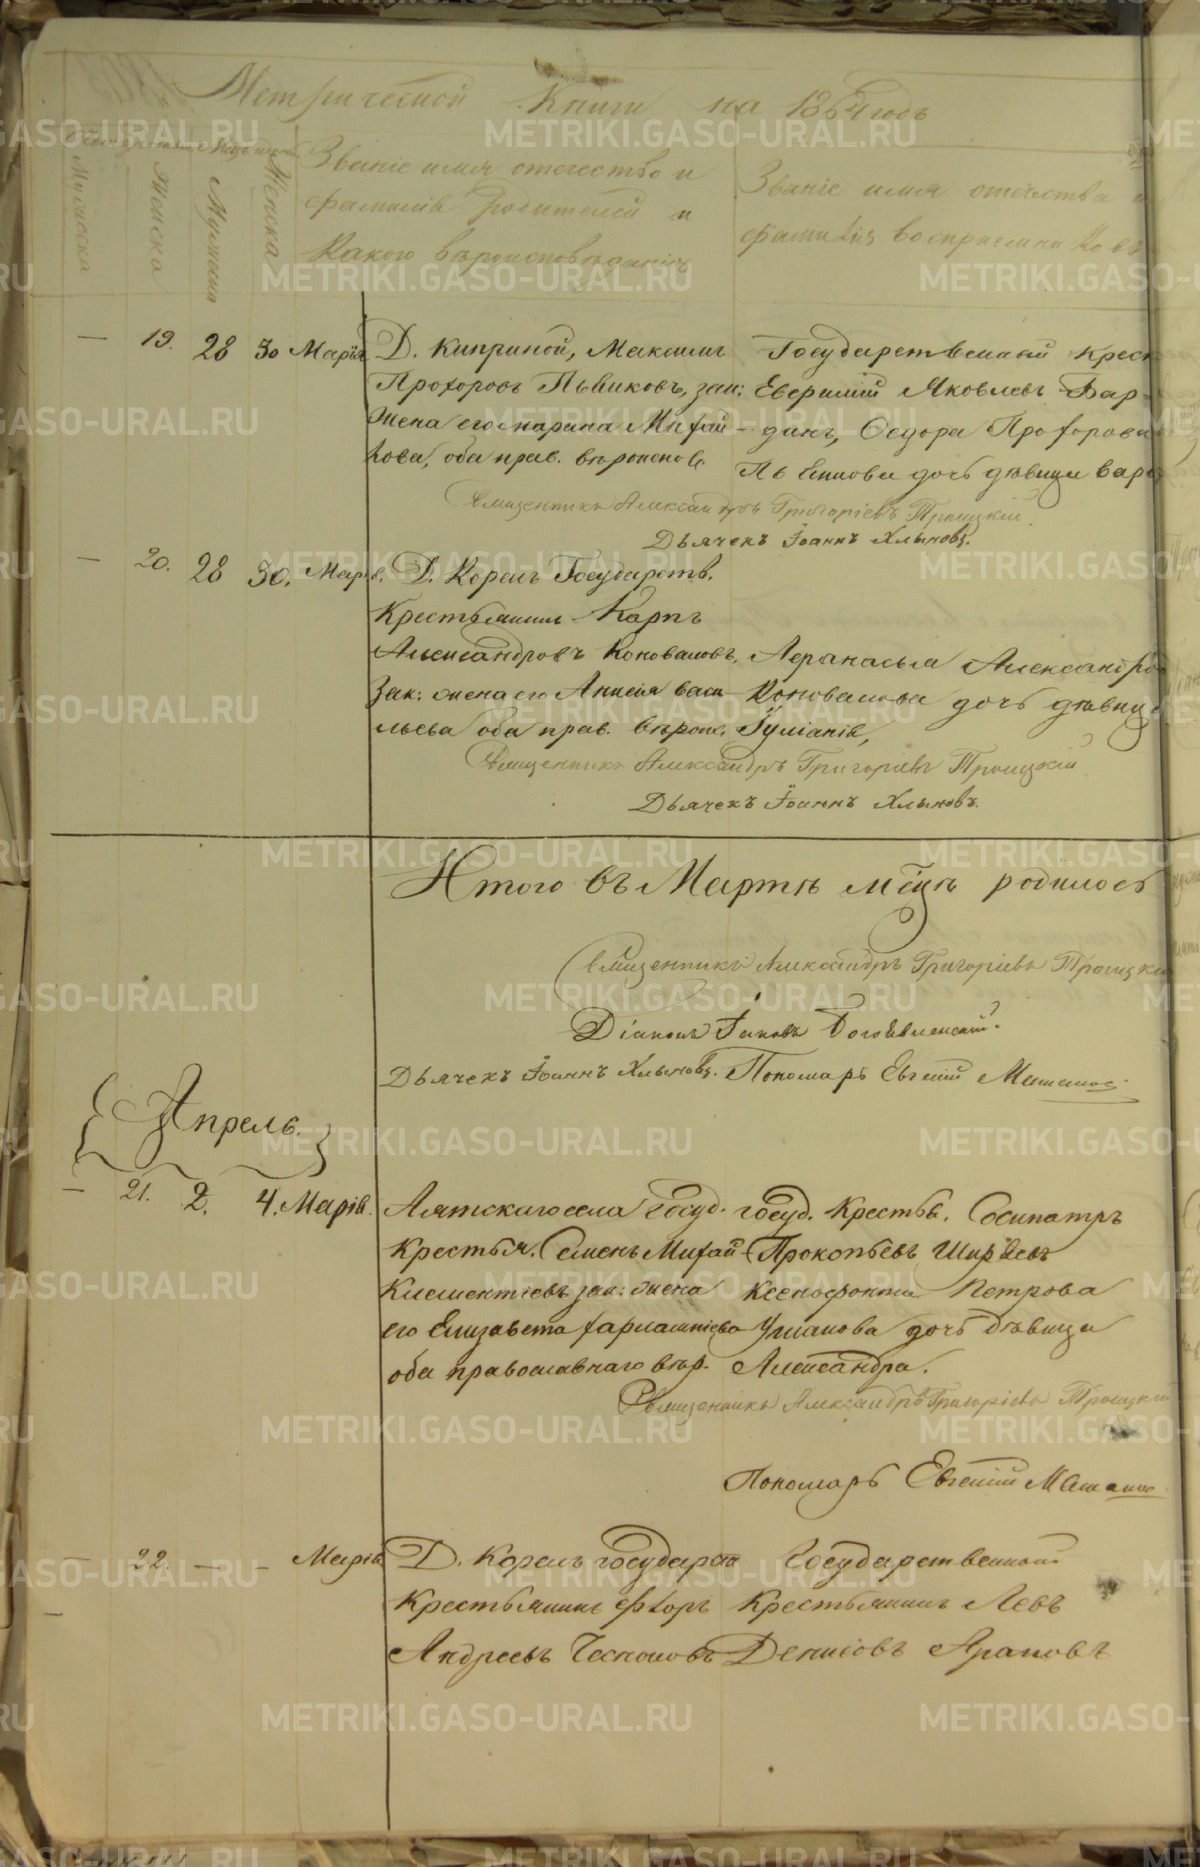 Метрической Книги на 1864 годъ
Мужеска
Женска
Званіе имя отечество и
фамилія родителей и
Какого вѣроисповѣданія
Званіе имя отечества
фамилія воспріемниковъ
— 19. 28 30 Марія
Д. Киприной, Максимъ
Прохоровъ Пьянковъ, зак:
жена его Марина Михай-
лова, оба прав. вѣроиспов.
Государственный крест
Евфимій Яковлевъ Бар-
динъ, Федора Прохорова
дочь дѣвица Варв
Священникъ Александръ Григоріевъ Троицкій.
Дьячекъ Іоаннъ Хлыновъ.
— 20. 28 30. Марія.
Д. Корелъ Государств.
Крестьянинъ Карпъ
Александровъ Коноваловъ,
Зак: жена его Анисія Васи-
льева оба прав. вѣроис.
Афанасья Александров
Коновалова дочь дѣвица
Іуліанія,
Священникъ Александръ Григоріевъ Троицкій
Дьячекъ Іоаннъ Хлыновъ.
Итого въ Мартѣ мѣцѣ родилось
Священникъ Александръ Григоріевъ Троицкій
Діаконъ Іаковъ Богоявленскій.
Дьячекъ Іоаннъ Хлыновъ. Пономарь Евгеній
Апрель.
— 21. 2. 4. Марія.
Аятскаго села Госуд.
Крестьян. Семенъ Михай-
Клементіевъ зак: жена
его Елизавета Харлампіева
оба православнаго вѣр.
госуд. Крестья. Сосипатръ
Прокопьевъ Ширяевъ
Ксенофонта Петрова
Ушакова дочь дѣвица
Александра.
Священникъ Александръ Григоріевъ Троицкій
Пономарь Евгеній
— 22. — - Марія
Д. Корелъ государств
Крестьянинъ Флоръ
Андреевъ Чесноковъ
Государственный
Крестьянинъ Левъ
Денисовъ Араповъ
METRIKI.GASO-URAL.RU